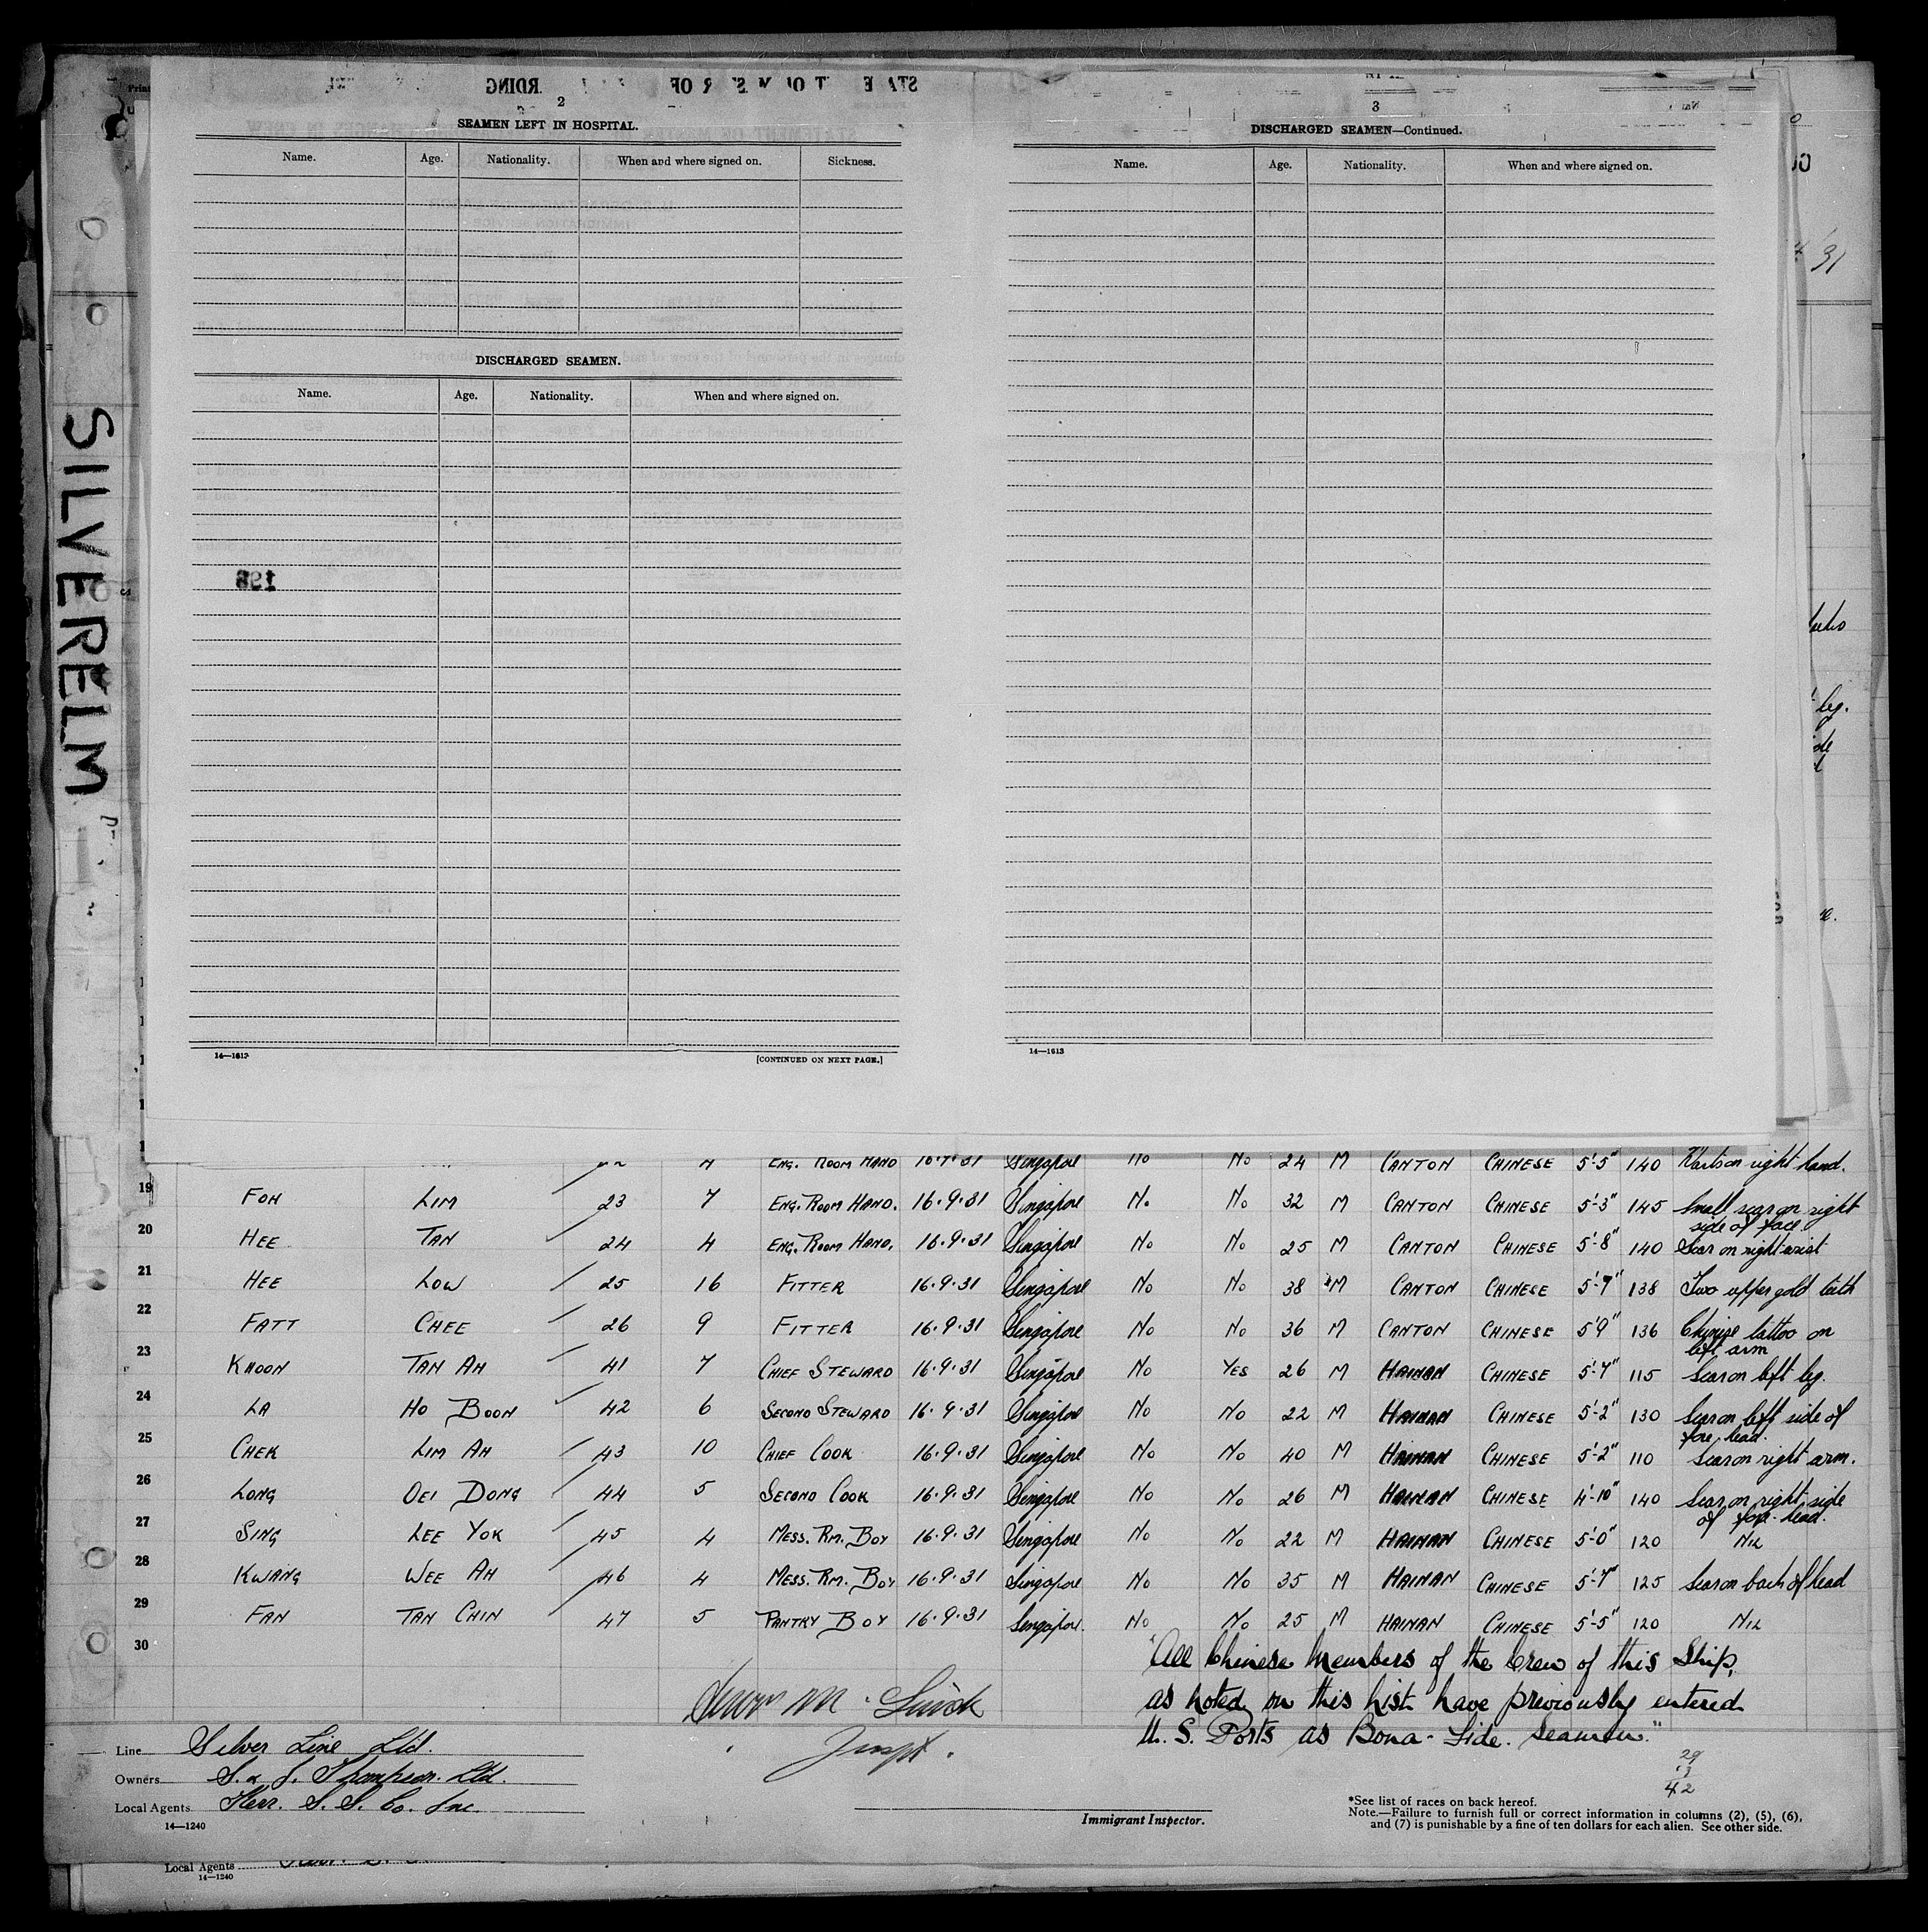 SILVERELM
2
SEAMEN LEFT IN HOSPITAL.
Name. Age. Nationality. When and where signed on. Sickness.
DISCHARGED SEAMEN.
Name. Age. Nationality. When and where signed on.
14—1613
[CONTINUED ON NEXT PAGE.]
3
DISCHARGED SEAMEN—Continued.
Name. Age. Nationality. When and where signed on.
14—1613
31
leg.
4 ENG. ROOM HAND 16.9.31 Singapore No No 24 M CANTON CHINESE 5'-5" 140 Warts on right hand.
19 FOH LIM 23 7 ENG. ROOM HAND. 16.9.31 Singapore No No 32 M CANTON CHINESE 5'-3" 145 Small scar on right
side of face
20 HEE TAN 24 4 ENG. ROOM HAND. 16.9.31 Singapore No No 25 M CANTON CHINESE 5'-8" 140 Scar on right wrist
21 HEE LOW 25 16 FITTER 16.9.31 Singapore No No 38 M CANTON CHINESE 5'-7" 138 Two upper gold teeth
22 FATT CHEE 26 9 FITTER 16.9.31 Singapore No No 36 M CANTON CHINESE 5'9" 136 Chinese tattoo on
left arm
23 KHOON TAN AH 41 7 CHIEF STEWARD 16.9.31 Singapore No YES 26 M HAINAN CHINESE 5'-7" 115 Scar on left leg.
24 LA HO BOON 42 6 SECOND STEWARD 16.9.31 Singapore No No 22 M HAINAN CHINESE 5'-2" 130 Scar on left side of
fore-head.
25 CHEK LIM AH 43 10 CHIEF COOK 16.9.31 Singapore No No 40 M HAINAN CHINESE 5'-2" 110 Scar on right arm.
26 LONG OEI DONG 44 5 SECOND COOK 16.9.31 Singapore No No 26 M HAINAN CHINESE 4'-10" 140 Scar on right side
of fore-head.
27 SING LEE YOK 45 4 MESS. RM. BOY 16.9.31 Singapore No No 22 M HAINAN CHINESE 5'-0" 120 NIL
28 KWANG WEE AH 46 4 MESS. RM. BOY 16.9.31 Singapore No No 35 M HAINAN CHINESE 5'-7" 125 Scar on back of head
29 FAN TAN CHIN 47 5 PANTRY BOY 16.9.31 Singapore. No No 25 M HAINAN CHINESE 5'-5" 120 NIL
30
"All Chinese Members of the Crew of this Ship,
as noted on this list have previously entered
U. S. Ports as Bona-Fide. seamen."
29
13
42
Line Silver Line Ltd.
Owners S. & J. Thompson. Ltd.
Local Agents Kerr. S. S. Co. Inc.
14—1240
Immigrant Inspector.
*See list of races on back hereof.
Note.—Failure to furnish full or correct information in columns (2), (5), (6),
and (7) is punishable by a fine of ten dollars for each alien. See other side.
Local Agents
14—1240